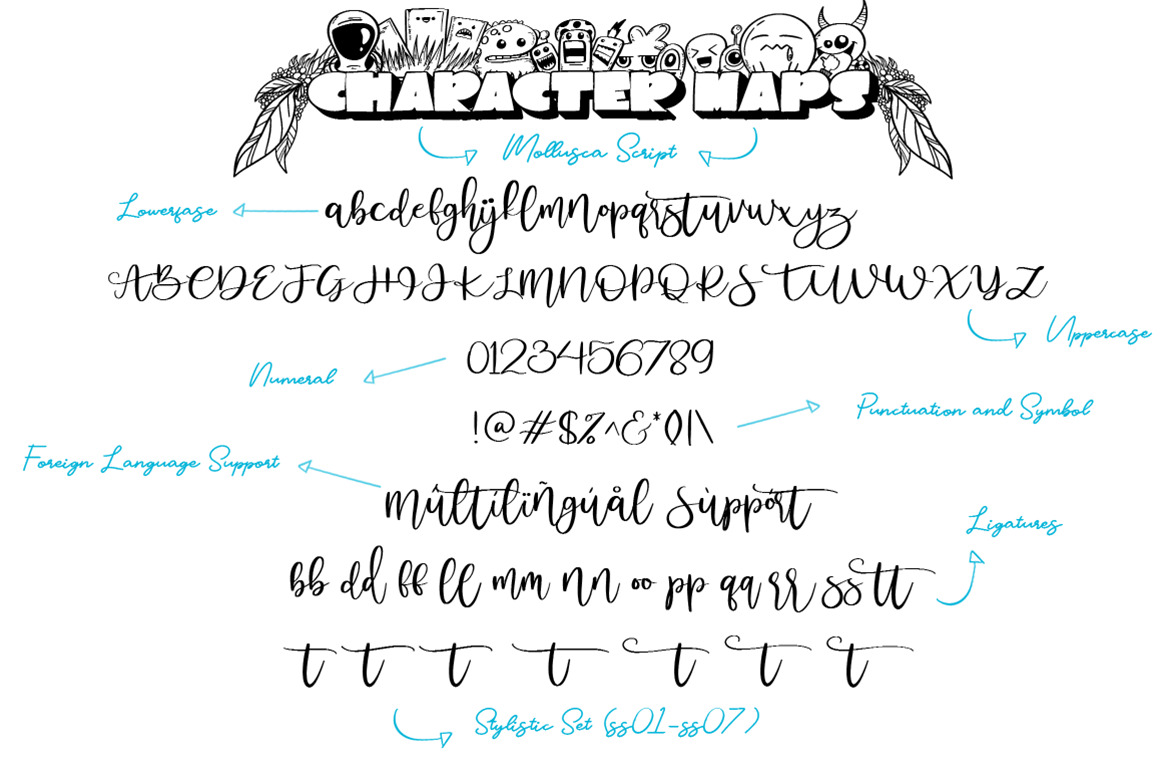 CHARACTER MAPS
Mollusca Script
Lowerfase
abcdefghijklmnopqrstuvwxyz
ABCDEFGHIJKLMNOPQRSTUVWXYZ
Uppercase
0123456789
Numeral
!@#$%^&*()|\
Punctuation and Symbol
Foreign Language Support
mûltïlïñgúål sùppórt
Ligatures
bb dd ff ll mm nn oo pp qq rr ss tt
t t t t t t t
Stylistic Set (ss01-ss07)